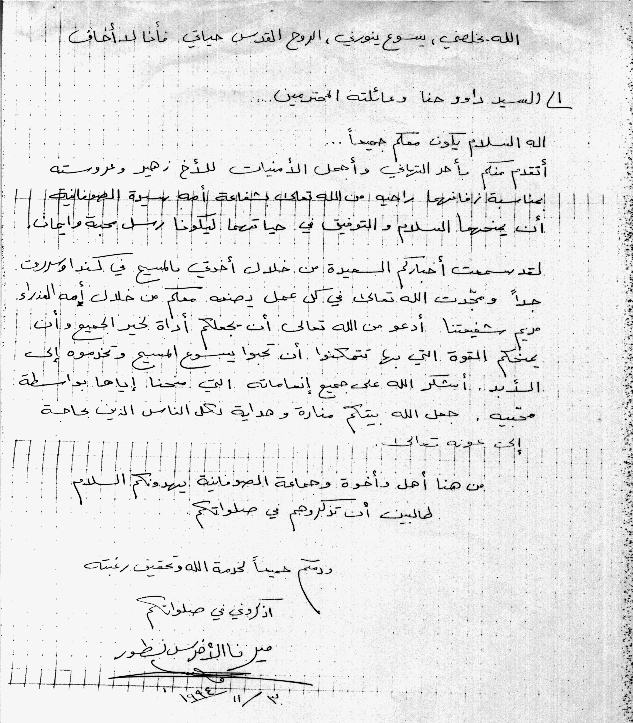 الله يخلصني، يسوع ينورني، الروح القدس حياتي فأنا لا أخاف
١/ السيد داوود حنا وعائلته المحترمين...
اله السلام يكون معكم جميعاً...
أتقدم منكم بأحر التهاني وأجمل الأمنيات للأخ زهير وعروسته
بمناسبة زفافهما راجيه من الله تعالى بشفاعة أمه سيدة الصوفانية
أن يمنحهما السلام والتوفيق في حياتهما ليكونا رسل محبة وايمان.
لقد سمعت أخباركم السعيدة من خلال أخوتي بالمسيح في كندا وسررت
جداً ومجّدت الله تعالى في كل عمل يصنعه معكم من خلال أمه العذراء
مريم شفيعتنا أدعو من الله تعالى أن يجعلكم أداة لخير الجميع وأن
يمنحكم القوة التي بها تتمكنوا أن تحبوا يسوع المسيح وتخدموه إلى
الأبد. أشكر الله على جميع إنعاماته التي منحنا إياها بواسطة
محبيه. جعل الله بيتكم منارة وهداية لكل الناس الذين بحاجة
إلى عونه تعالى.
من هنا أهل وأخوة وجماعة الصوفانية يهدونكم السلام
طالبين أن تذكروهم في صلواتكم
ودمتم جميعاً لخدمة الله وتحقيق رغبته
اذكروني في صلواتكم
ميرنا الأخرس نظور
٣٠/١١/١٩٩٤